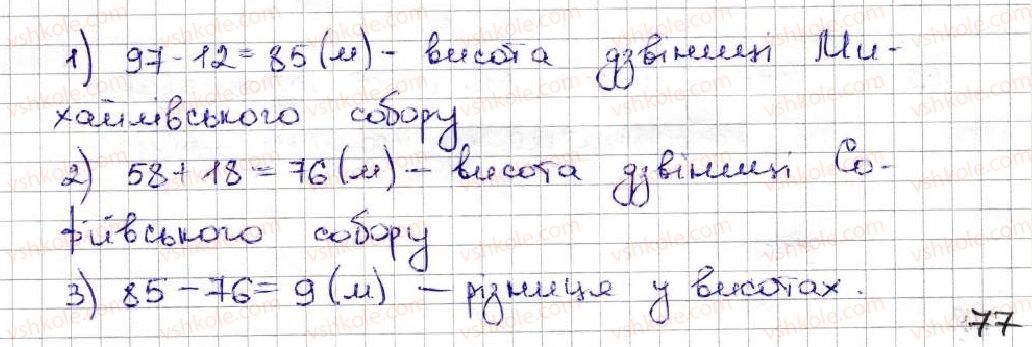 1) 97-12=85(м) - висота дзвіниці Ми-
хайлівського собору
2) 58+18=76(м) - висота дзвіниці Со-
фіївського собору
3) 85-76=9(м) - різниця у висотах.
77